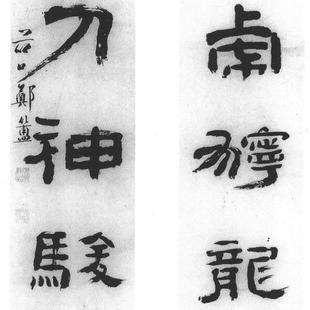 虎獰龍
力神駿
谷口鄭簠